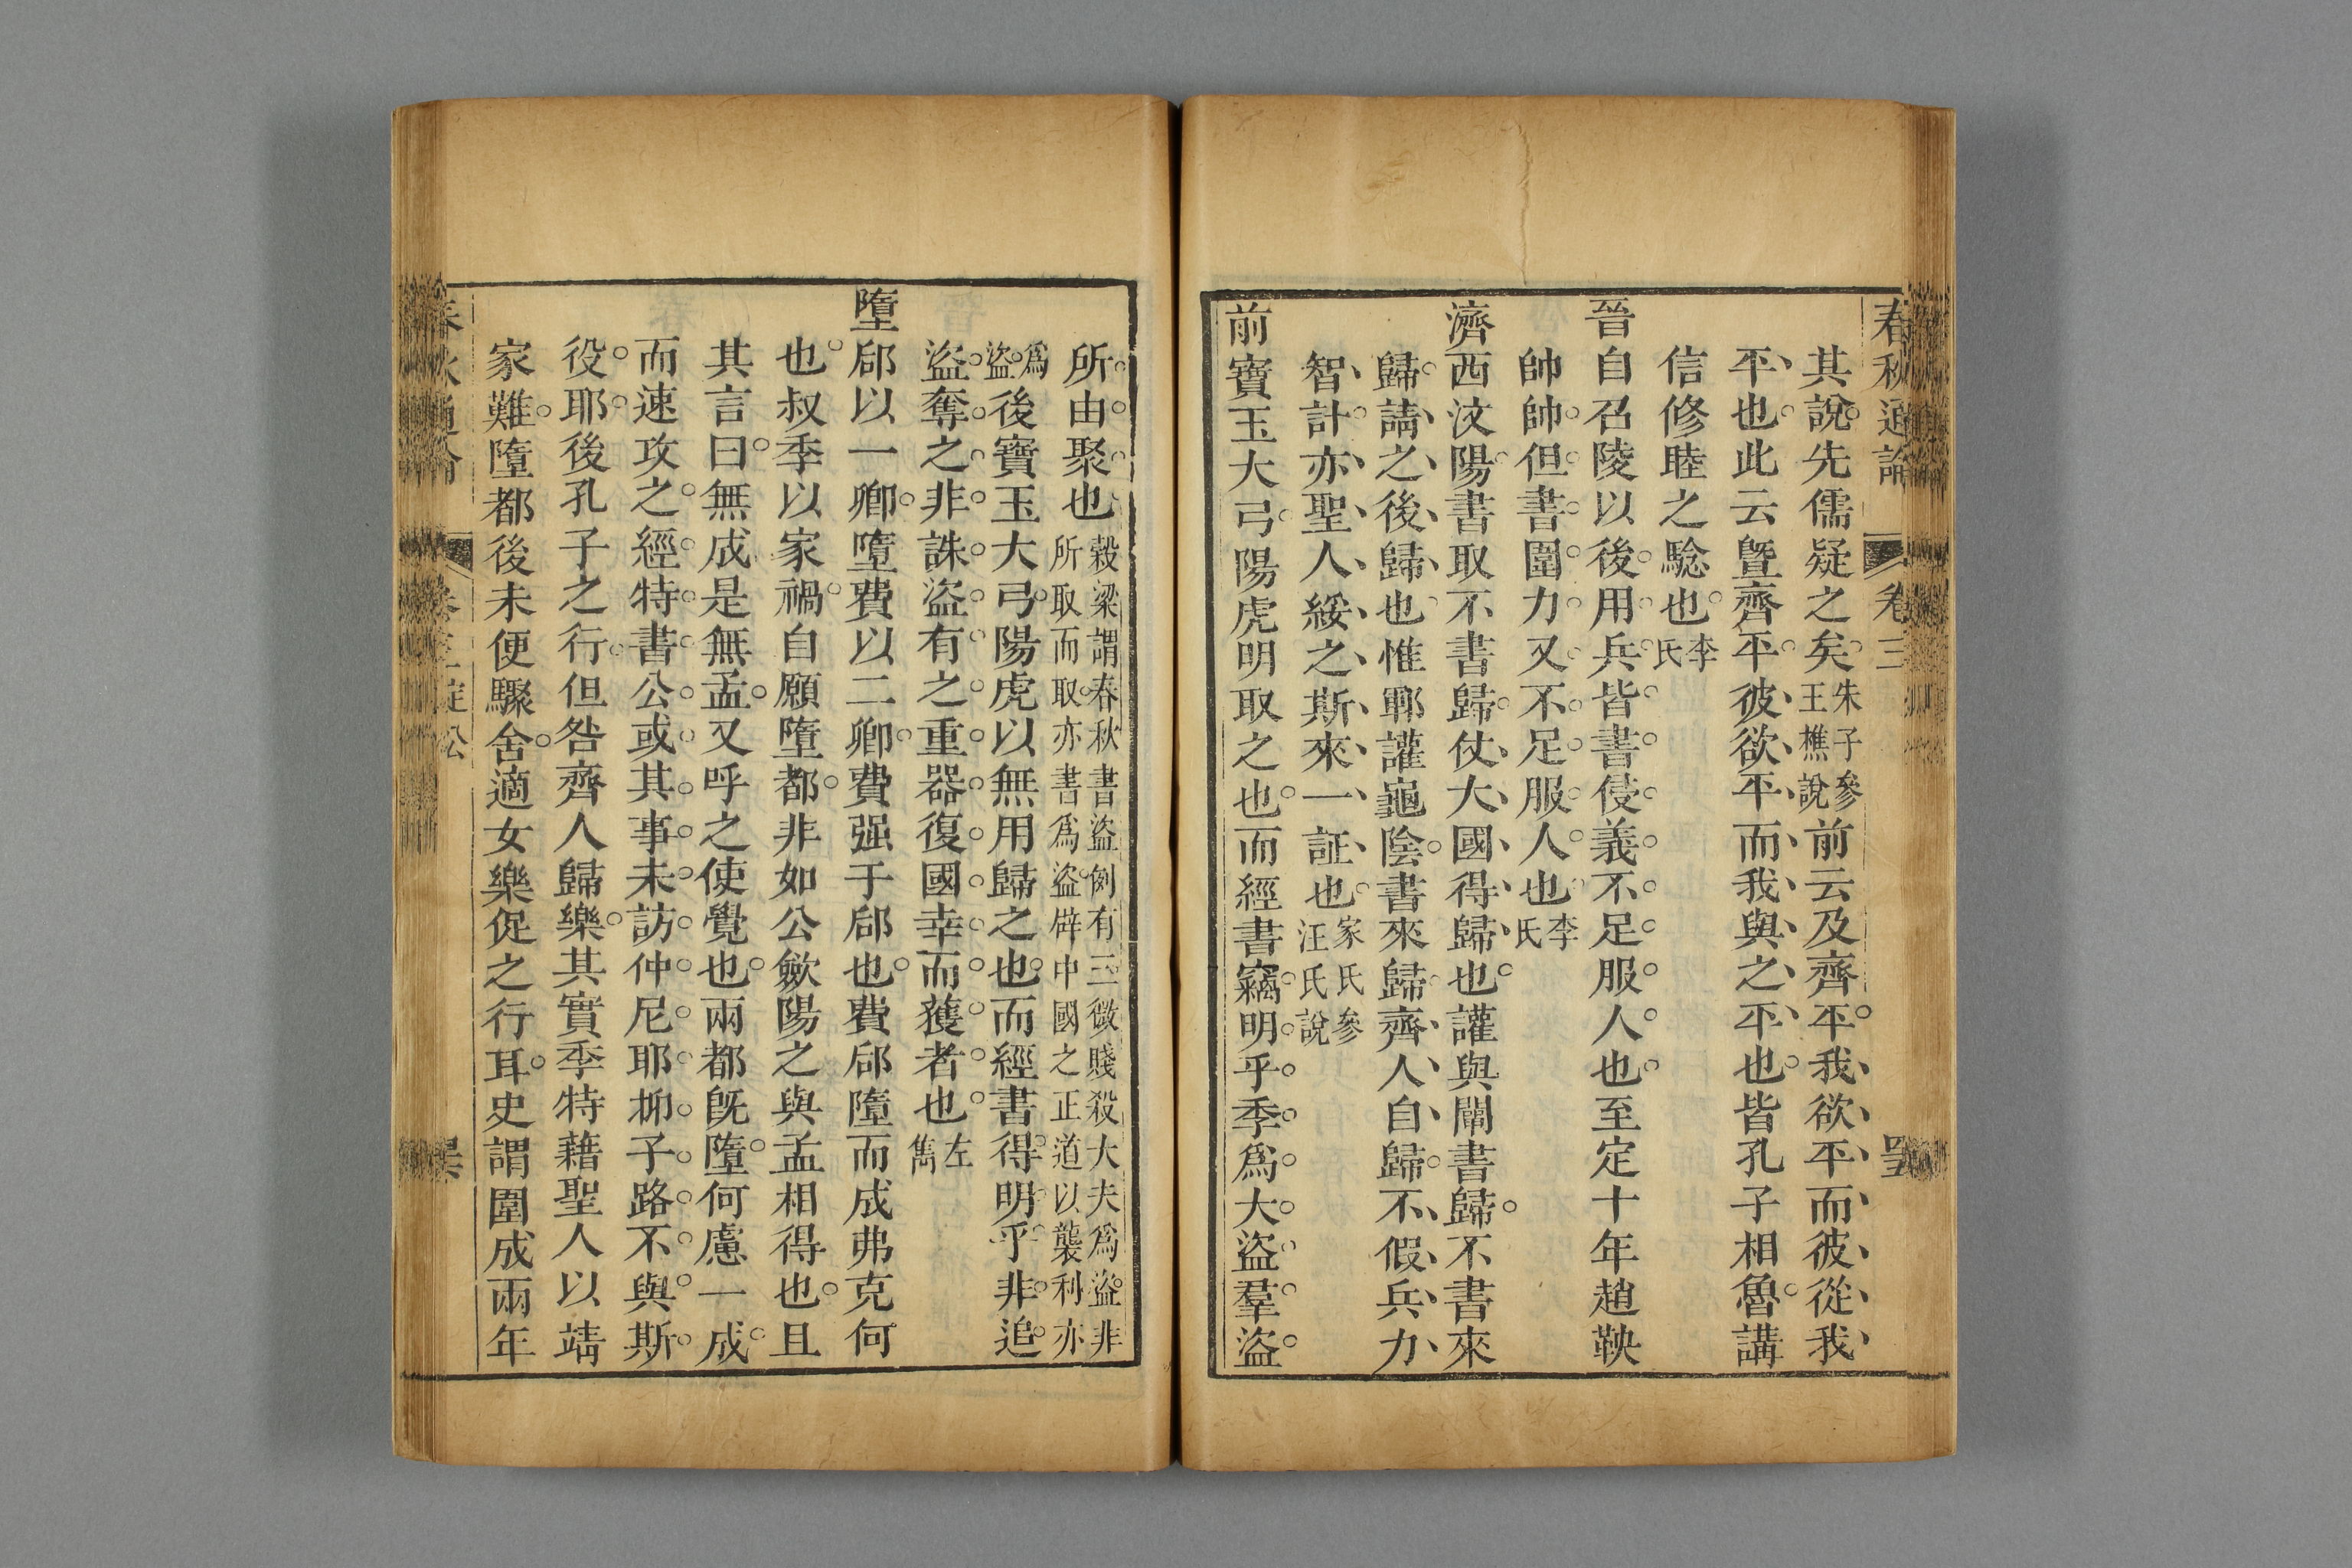 春秋通論 卷三
其說先儒疑之矣朱子參王樵說前云及齊平我欲平而彼從我
平也此云曁齊平彼欲平而我與之平也皆孔子相魯講
信修睦之騐也李氏
晉自召陵以後用兵皆書侵義不足服人也至定十年趙鞅
帥帥但書圍力又不足服人也李氏
濟西汶陽書取不書歸仗大國得歸也讙與闡書歸不書來
歸請之後歸也惟鄆讙龜陰書來歸齊人自歸不假兵力
智計亦聖人綏之斯來一証也家氏參汪氏說
前寶玉大弓陽虎明取之也而經書竊明乎季爲大盜羣盜
所由聚也穀梁謂春秋書盜例有三微賤殺大夫爲盜非所取而取亦書爲盜辟中國之正道以襲利亦
爲盜後寶玉大弓陽虎以無用歸之也而經書得明乎非追
盜奪之非誅盜有之重器復國幸而獲者也左雋
墮郈以一卿墮費以二卿費强于郈也費郈墮而成弗克何
也叔季以家禍自願墮都非如公歛陽之與孟相得也且
其言曰無成是無孟又呼之使覺也兩都旣墮何慮一成
而速攻之經特書公或其事未訪仲尼耶抑子路不與斯
役耶後孔子之行但咎齊人歸樂其實季特藉聖人以靖
家難墮都後未便驟舍適女樂促之行耳史謂圍成兩年